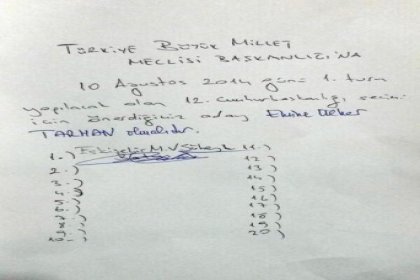 TÜRKİYE BÜYÜK MİLLET
MECLİSİ BAŞKANLIĞI'NA
10 Ağustos 2014 günü 1. turu
yapılacak olan 12. Cumhurbaşkanlığı seçimi
için önerdiğimiz aday Emine Ülker
TARHAN olmalıdır.
1-) Eskişehir M.V. Süheyl 11-)
2-) 12-)
3-) 13-)
4-) 14-)
5-) 15-)
6-) 16-)
7-) 17-)
8-) 18-)
9-) 19-)
10-) 20-)